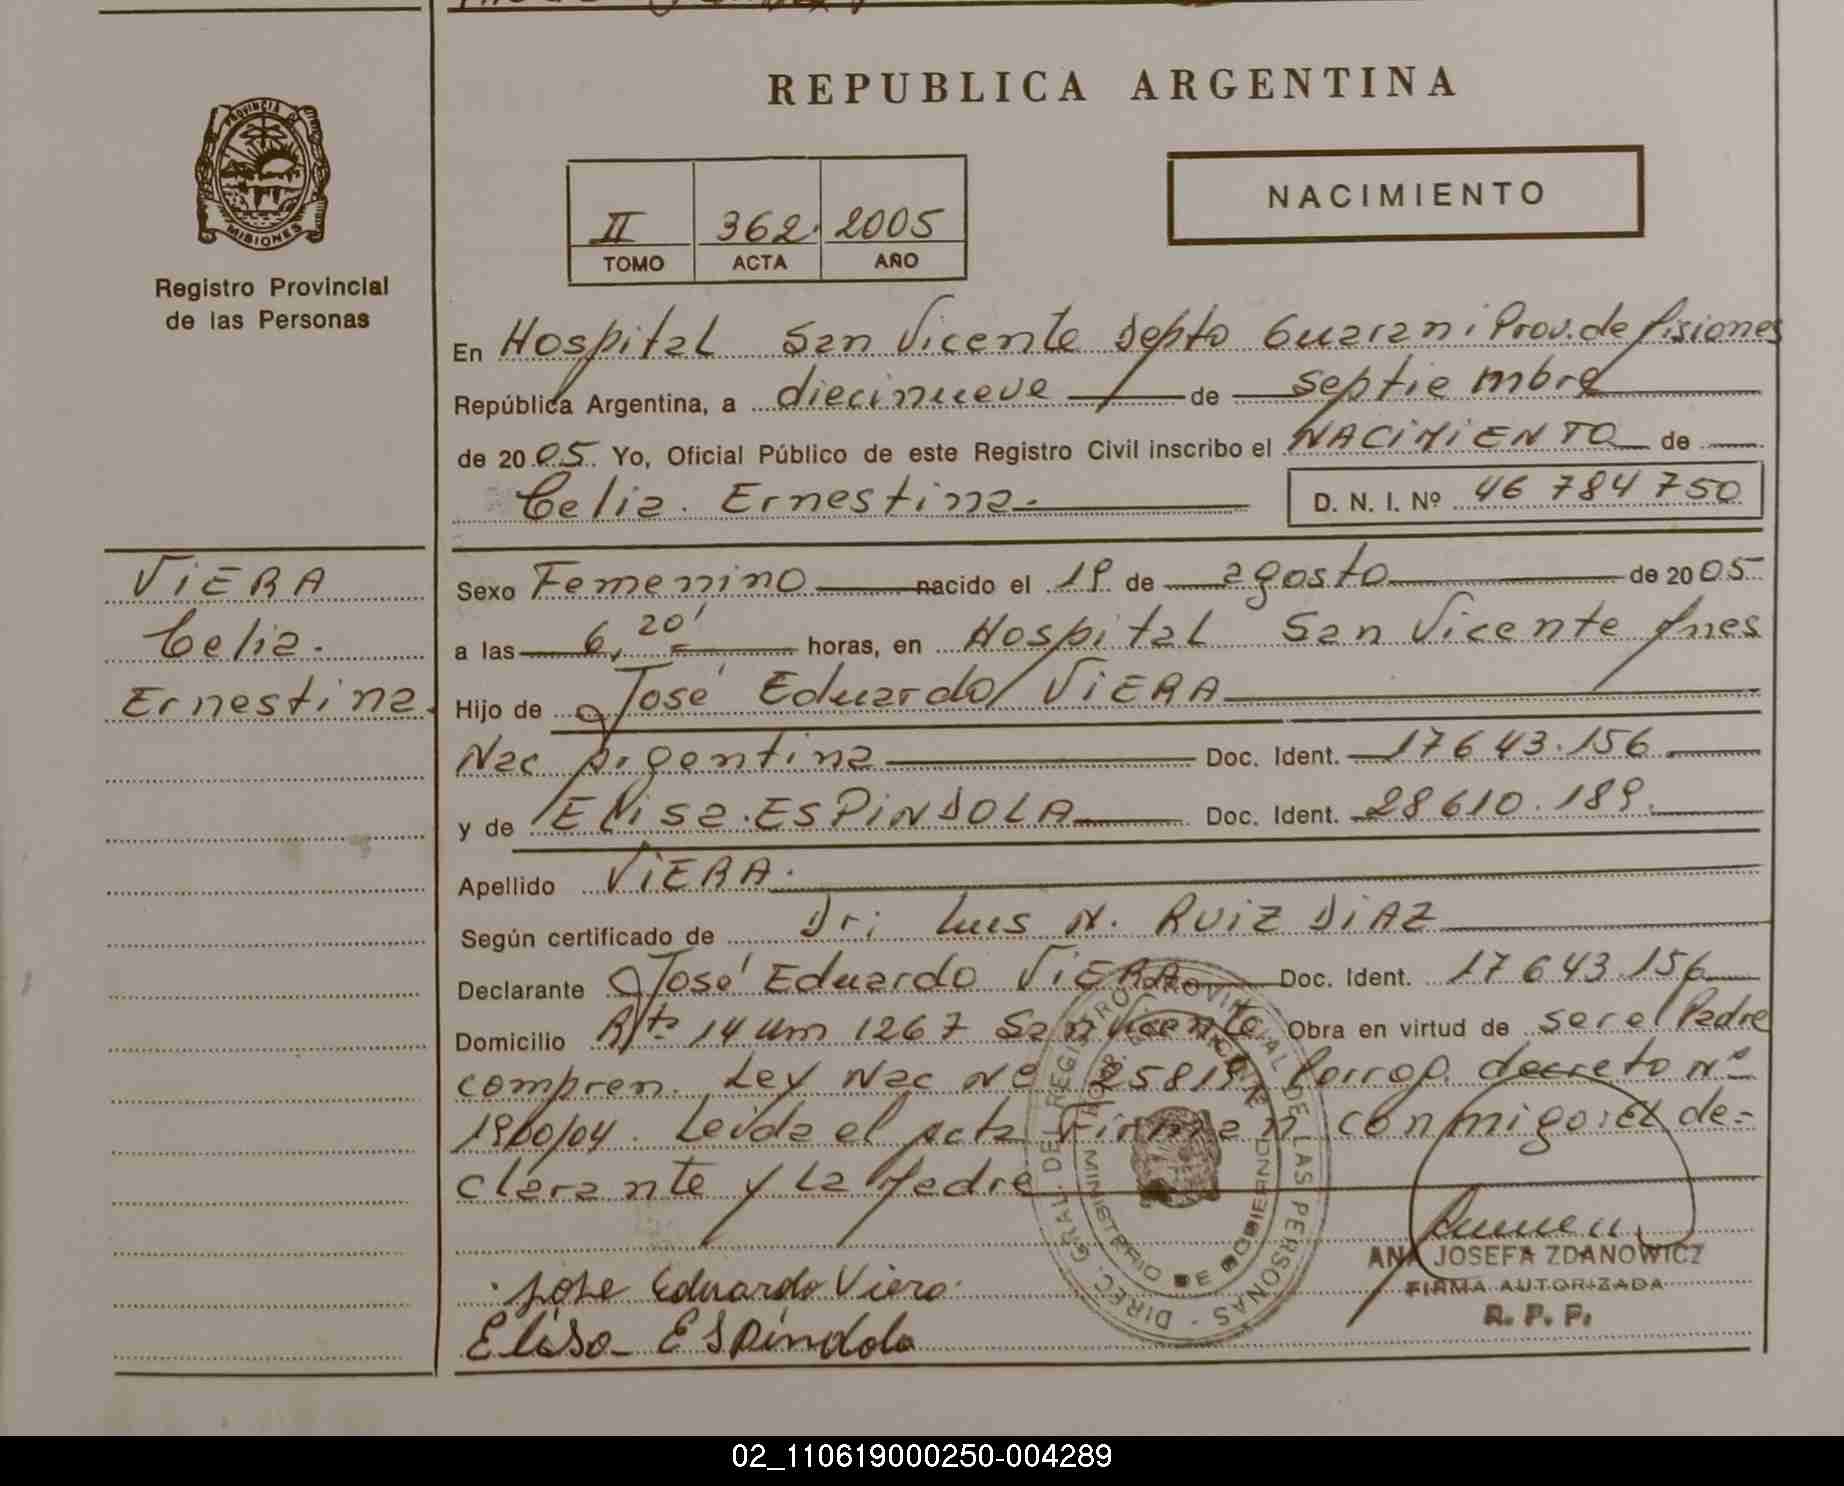 REPUBLICA ARGENTINA
PROVINCIA DE MISIONES
Registro Provincial
de las Personas
NACIMIENTO
II 362 2005
TOMO ACTA AÑO
En Hospital San Vicente Depto Guarani Prov. de Misiones
República Argentina, a diecinueve de septiembre
de 2005 Yo, Oficial Público de este Registro Civil inscribo el NACIMIENTO de
Celia Ernestina
D. N. I. Nº 46 784 750
VIERA
Celia
Ernestina
Sexo Femenino nacido el 19 de agosto de 2005
a las 6,20' horas, en Hospital San Vicente Mnes
Hijo de José Eduardo VIERA
Nac Argentina Doc. Ident. 17643.156
y de Elisa ESPINDOLA Doc. Ident. 28610.189
Apellido VIERA
Según certificado de Dr; Luis N. RUIZ DIAZ
Declarante José Eduardo VIERA Doc. Ident. 17643.156
Domicilio Rta 14 Km 1267 San Vicente Obra en virtud de ser el Padre
compren. Ley Nac Nº 25819 Porrog. decreto Nº
1900/04. Leida el acta Firman conmigo: el de=
clarante y La Madre
jose Eduardo Viera
Elisa Espindola
DIREC. GRAL. DEL REGISTRO PROVINCIAL DE LAS PERSONAS
MINISTERIO DE GOBIERNO
ANA JOSEFA ZDANOWICZ
FIRMA AUTORIZADA
R. P. P.
02_110619000250-004289